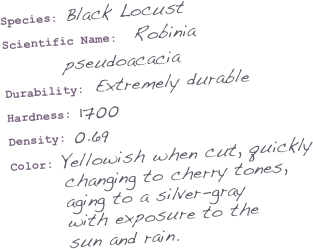 Species: Black Locust
Scientific Name: Robinia
pseudoacacia
Durability: Extremely durable
Hardness: 1700
Density: 0.69
Color: Yellowish when cut, quickly
changing to cherry tones,
aging to a silver-gray
with exposure to the
sun and rain.